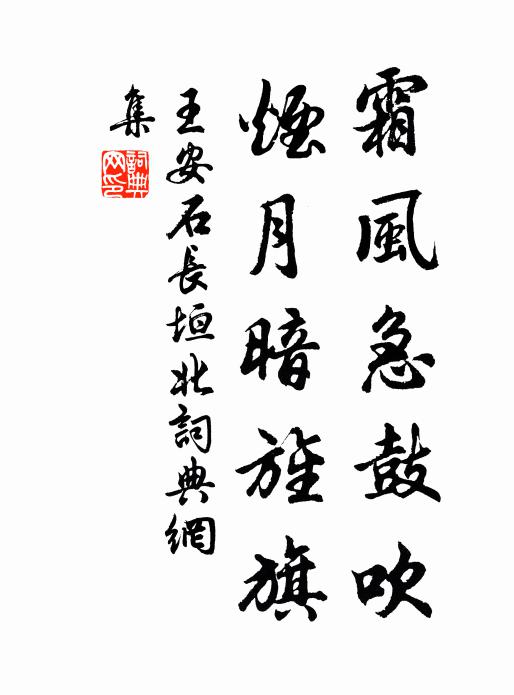 霜風急鼓吹
煙月暗旌旗
王安石長垣北詞典網
集
詞典
网印